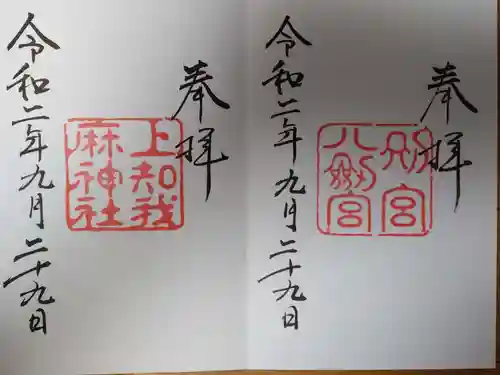 奉拝
上知我麻神社
令和二年九月二十九日
奉拝
別宮八剣宮
令和二年九月二十九日